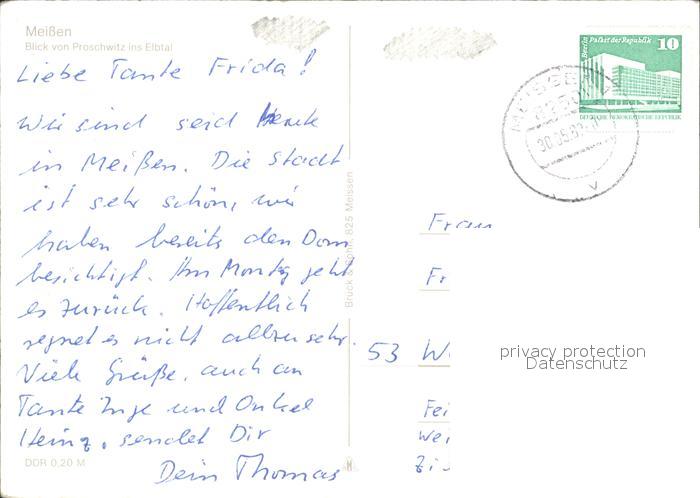 Meißen
Blick von Proschwitz ins Elbtal
Liebe Tante Frida!
Wir sind seid Heute
in Meißen. Die Stadt
ist sehr schön, wir
haben bereits den Dom
besichtigt. Am Montag geht
es zurück. Hoffentlich
regnet es nicht allzu sehr.
Viele Grüße, auch an
Tante Inge und Onkel
Heinz, sendet Dir
Dein Thomas
DDR 0,20 M
Bruck & Sohn, 825 Meissen
Berlin Palast der Republik
10
DEUTSCHE DEMOKRATISCHE REPUBLIK
MEISSEN
8250
30.05.
v
Frau
Fr
53 W
Fei
Wei
Zi
privacy protection
Datenschutz